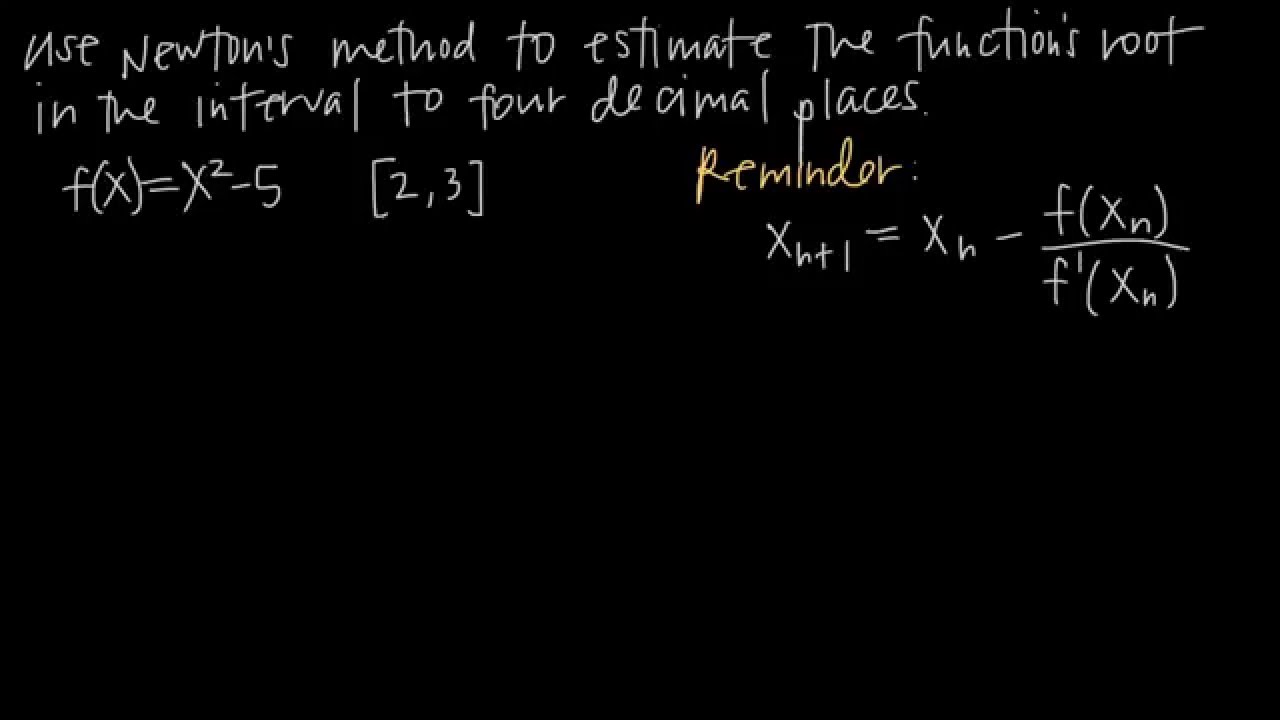 Use Newton's method to estimate the function's root
in the interval to four decimal places.
f(x)=x²-5 [2,3]
Reminder:
xₙ₊₁ = xₙ - f(xₙ)/f'(xₙ)